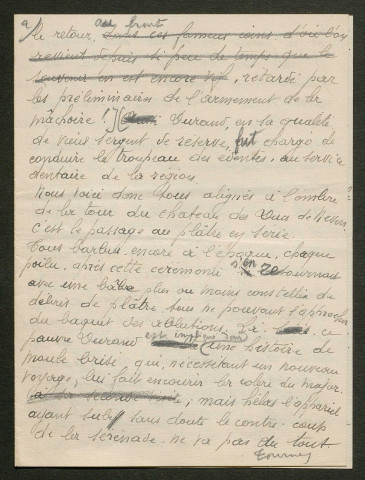 au front
le retour, dans ces fameux coins d'où l'on
revient depuis si peu de temps que le
souvenir en est encore vif, retardé par
les préliminaires de l'armement de la
mâchoire !) Durand, en sa qualité
de vieux sergent de réserve, fut chargé de
conduire le troupeau des édentés, au service
dentaire de la région.
Nous voici donc tous alignés à l'ombre
de la tour du chateau des Ducs de
c'est le passage au plâtre en série.
Tous barbus, encore à l'époque, chaque
poilu, après cette cérémonie s'en retournait
avec une barbe plus ou moins constellée de
débris de plâtre, tous ne pouvant s'approcher
du baquet des ablutions. Ici ce
pauvre Durand est une histoire de
moule brisé, qui, nécessitant un nouveau
voyage, lui fait encourir la colère du major.
; mais hélas l'appareil
ayant subi sans doute le contre-coup
de la sérénade ne va pas du tout.
Tournez